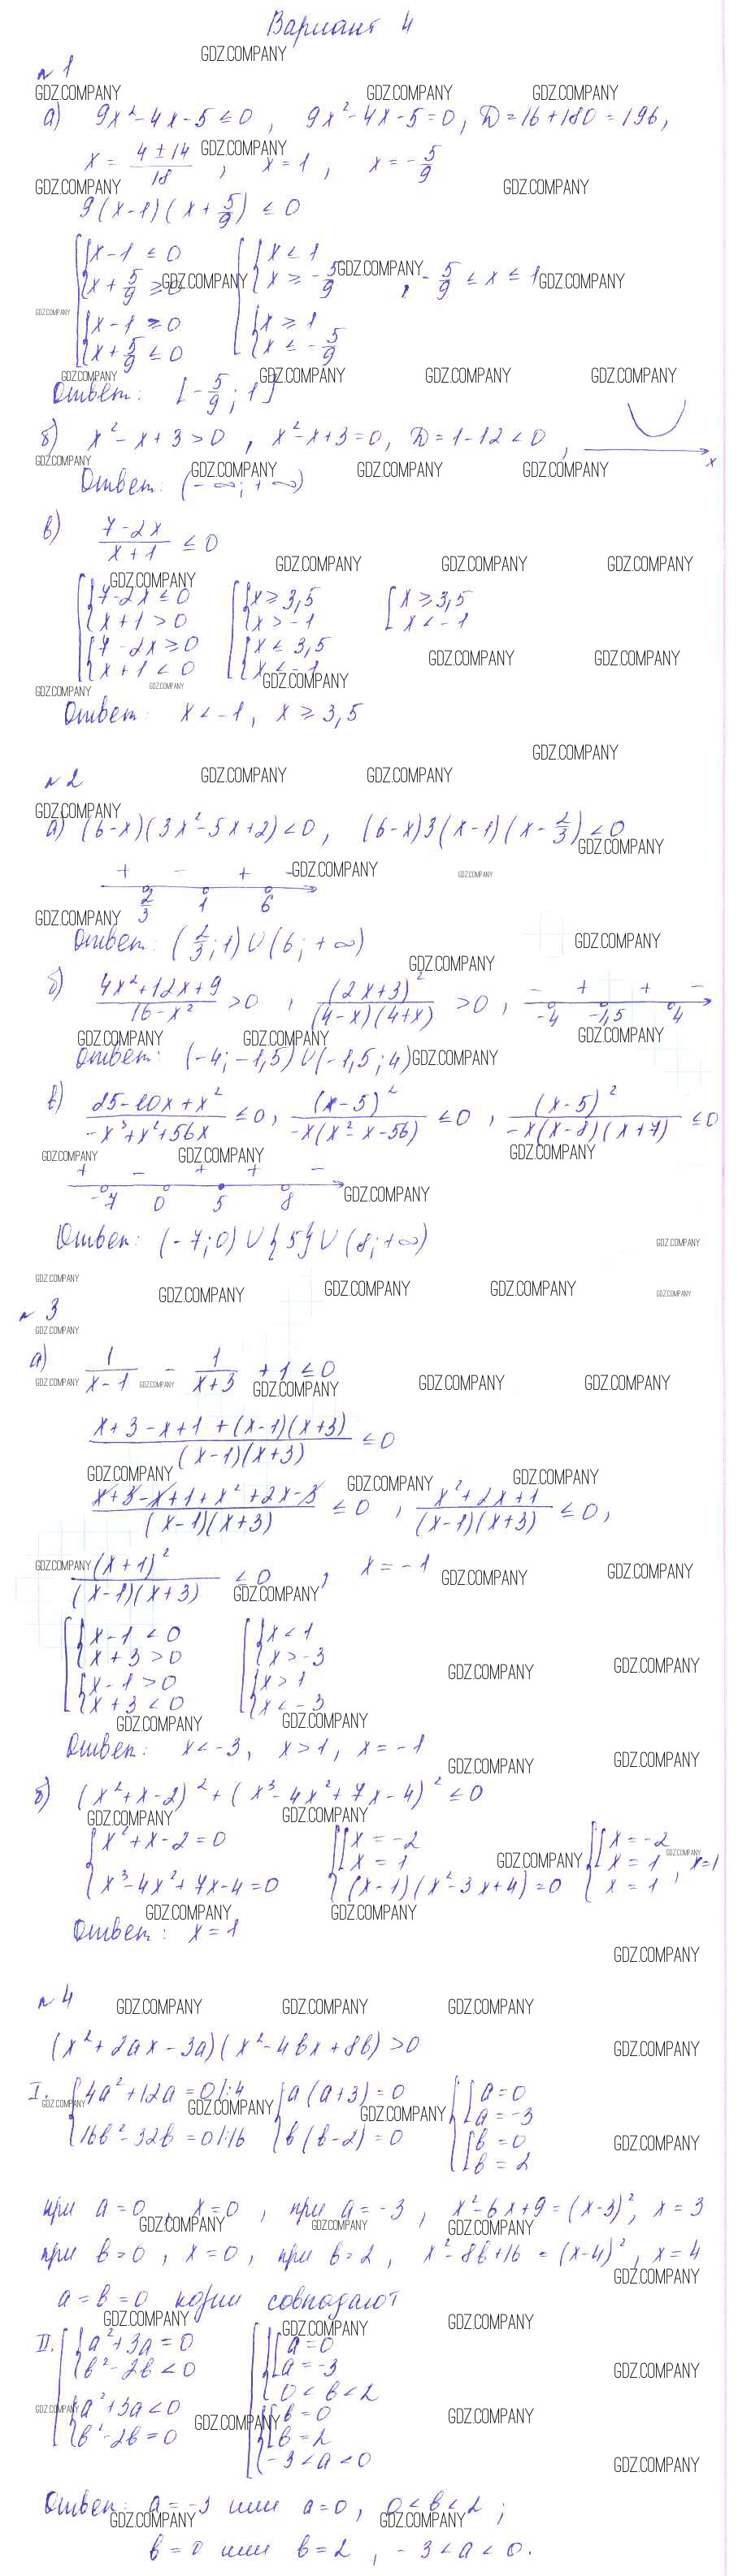 Вариант 4
GDZ.COMPANY
№1
а) 9x² - 4x - 5 ≤ 0, 9x² - 4x - 5 = 0, D = 16 + 180 = 196,
x = (4 ± 14)/18, x = 1, x = -5/9
9(x-1)(x + 5/9) ≤ 0
[{x - 1 ≤ 0 [{x < 1
{x + 5/9 ≥ 0 {x ≥ -5/9, -5/9 ≤ x ≤ 1
{x - 1 ≥ 0 {x ≥ 1
{x + 5/9 ≤ 0 {x ≤ -5/9
Ответ: [-5/9; 1]
б) x² - x + 3 > 0, x² - x + 3 = 0, D = 1 - 12 < 0, x
Ответ: (-∞; +∞)
в) (7 - 2x)/(x + 1) ≤ 0
[{7 - 2x ≤ 0 [{x ≥ 3,5 [x ≥ 3,5
{x + 1 > 0 {x > -1 x < -1
{7 - 2x ≥ 0 {x ≤ 3,5
{x + 1 < 0 {x < -1
Ответ: x < -1, x ≥ 3,5
№2
а) (6-x)(3x² - 5x + 2) < 0, (6-x)3(x-1)(x - 2/3) < 0
+ - + -
2/3 1 6
Ответ: (2/3; 1) ∪ (6; +∞)
б) (4x² + 12x + 9)/(16 - x²) > 0, (2x+3)²/((4-x)(4+x)) > 0, - + + -
-4 -1,5 4
Ответ: (-4; -1,5) ∪ (-1,5; 4)
в) (25 - 10x + x²)/(-x³ + x² + 56x) ≤ 0, (x-5)²/(-x(x² - x - 56)) ≤ 0, (x-5)²/(-x(x-8)(x+7)) ≤ 0
+ - + + -
-7 0 5 8
Ответ: (-7; 0) ∪ {5} ∪ (8; +∞)
№3
а) 1/(x-1) - 1/(x+3) + 1 ≤ 0
(x + 3 - x + 1 + (x-1)(x+3))/((x-1)(x+3)) ≤ 0
(x + 3 - x + 1 + x² + 2x - 3)/((x-1)(x+3)) ≤ 0, (x² + 2x + 1)/((x-1)(x+3)) ≤ 0,
(x+1)²/((x-1)(x+3)) ≤ 0, x = -1
[{x - 1 < 0 [{x < 1
{x + 3 > 0 {x > -3
{x - 1 > 0 {x > 1
{x + 3 < 0 {x < -3
Ответ: x < -3, x > 1, x = -1
б) (x² + x - 2)² + (x³ - 4x² + 7x - 4)² ≤ 0
{x² + x - 2 = 0 {[x = -2 {[x = -2
x = 1 x = 1, x=1
x³ - 4x² + 7x - 4 = 0 (x-1)(x² - 3x + 4) = 0 x = 1
Ответ: x = 1
№4
(x² + 2ax - 3a)(x² - 4bx + 8b) > 0
I. {4a² + 12a = 0 |:4 {a(a+3) = 0 {[a = 0
a = -3
16b² - 32b = 0 |:16 b(b-2) = 0 [b = 0
b = 2
при a = 0, x = 0, при a = -3, x² - 6x + 9 = (x-3)², x = 3
при b = 0, x = 0, при b = 2, x² - 8b + 16 = (x-4)², x = 4
a = b = 0 корни совпадают
II. [{a² + 3a = 0 [{[a = 0
{b² - 2b < 0 a = -3
0 < b < 2
{a² + 3a < 0 {[b = 0
{b² - 2b = 0 b = 2
-3 < a < 0
Ответ: a = -3 или a = 0, 0 < b < 2;
b = 0 или b = 2, -3 < a < 0.